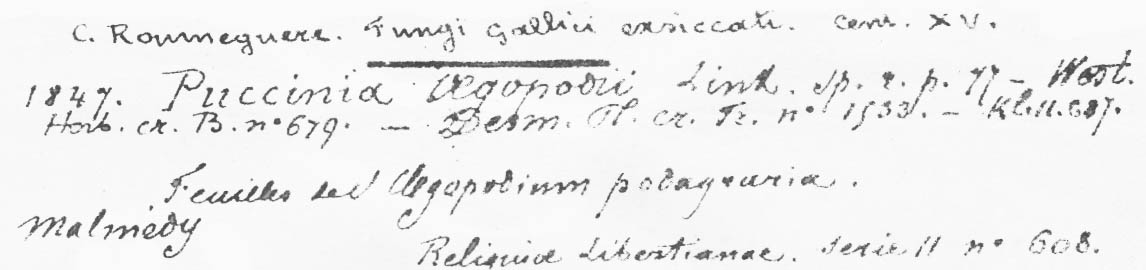 C. Roumeguere. Fungi Gallici exsiccati. Cent. XV.
1847. Puccinia Ægopodii Link. Sp. 2. p. 77 — West.
Herb. cr. B. n° 679. — Desm. Pl. cr. Fr. n° 1533. — Kl. II. 687.
Feuilles de l'Ægopodium podagraria.
Malmédy
Reliquiæ Libertianae. Serie II n° 608.